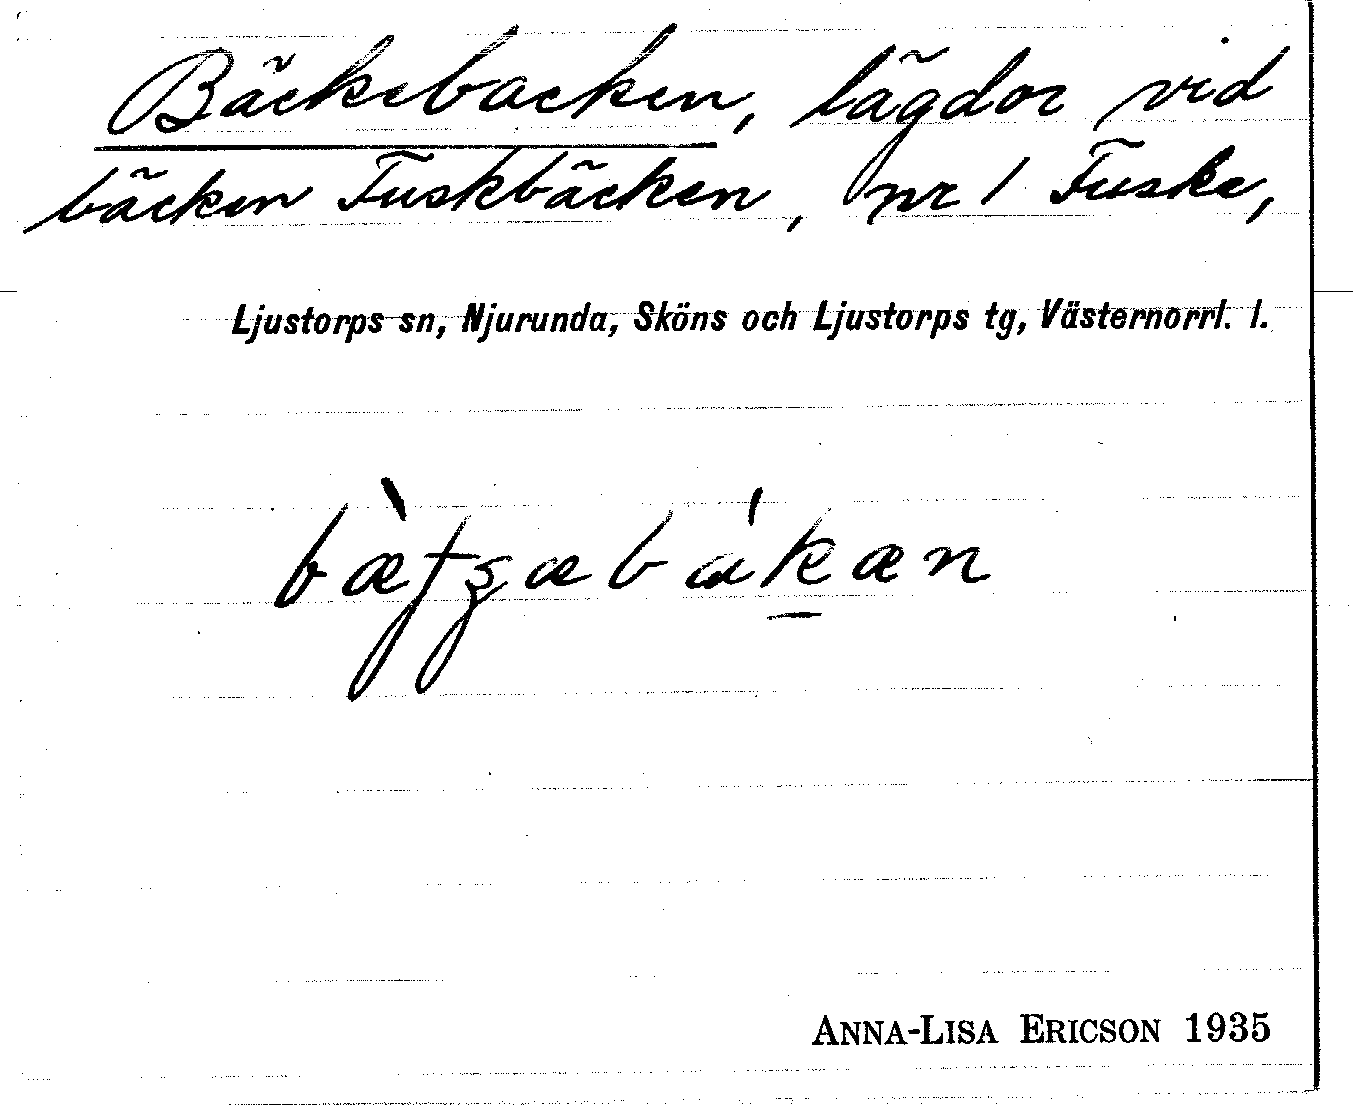 Bäckebacken, lägdor vid
bäcken Fuskbäcken, nr 1 Fuske,
Ljustorps sn, Njurunda, Sköns och Ljustorps tg, Västernorrl. l.
ANNA-LISA ERICSON 1935